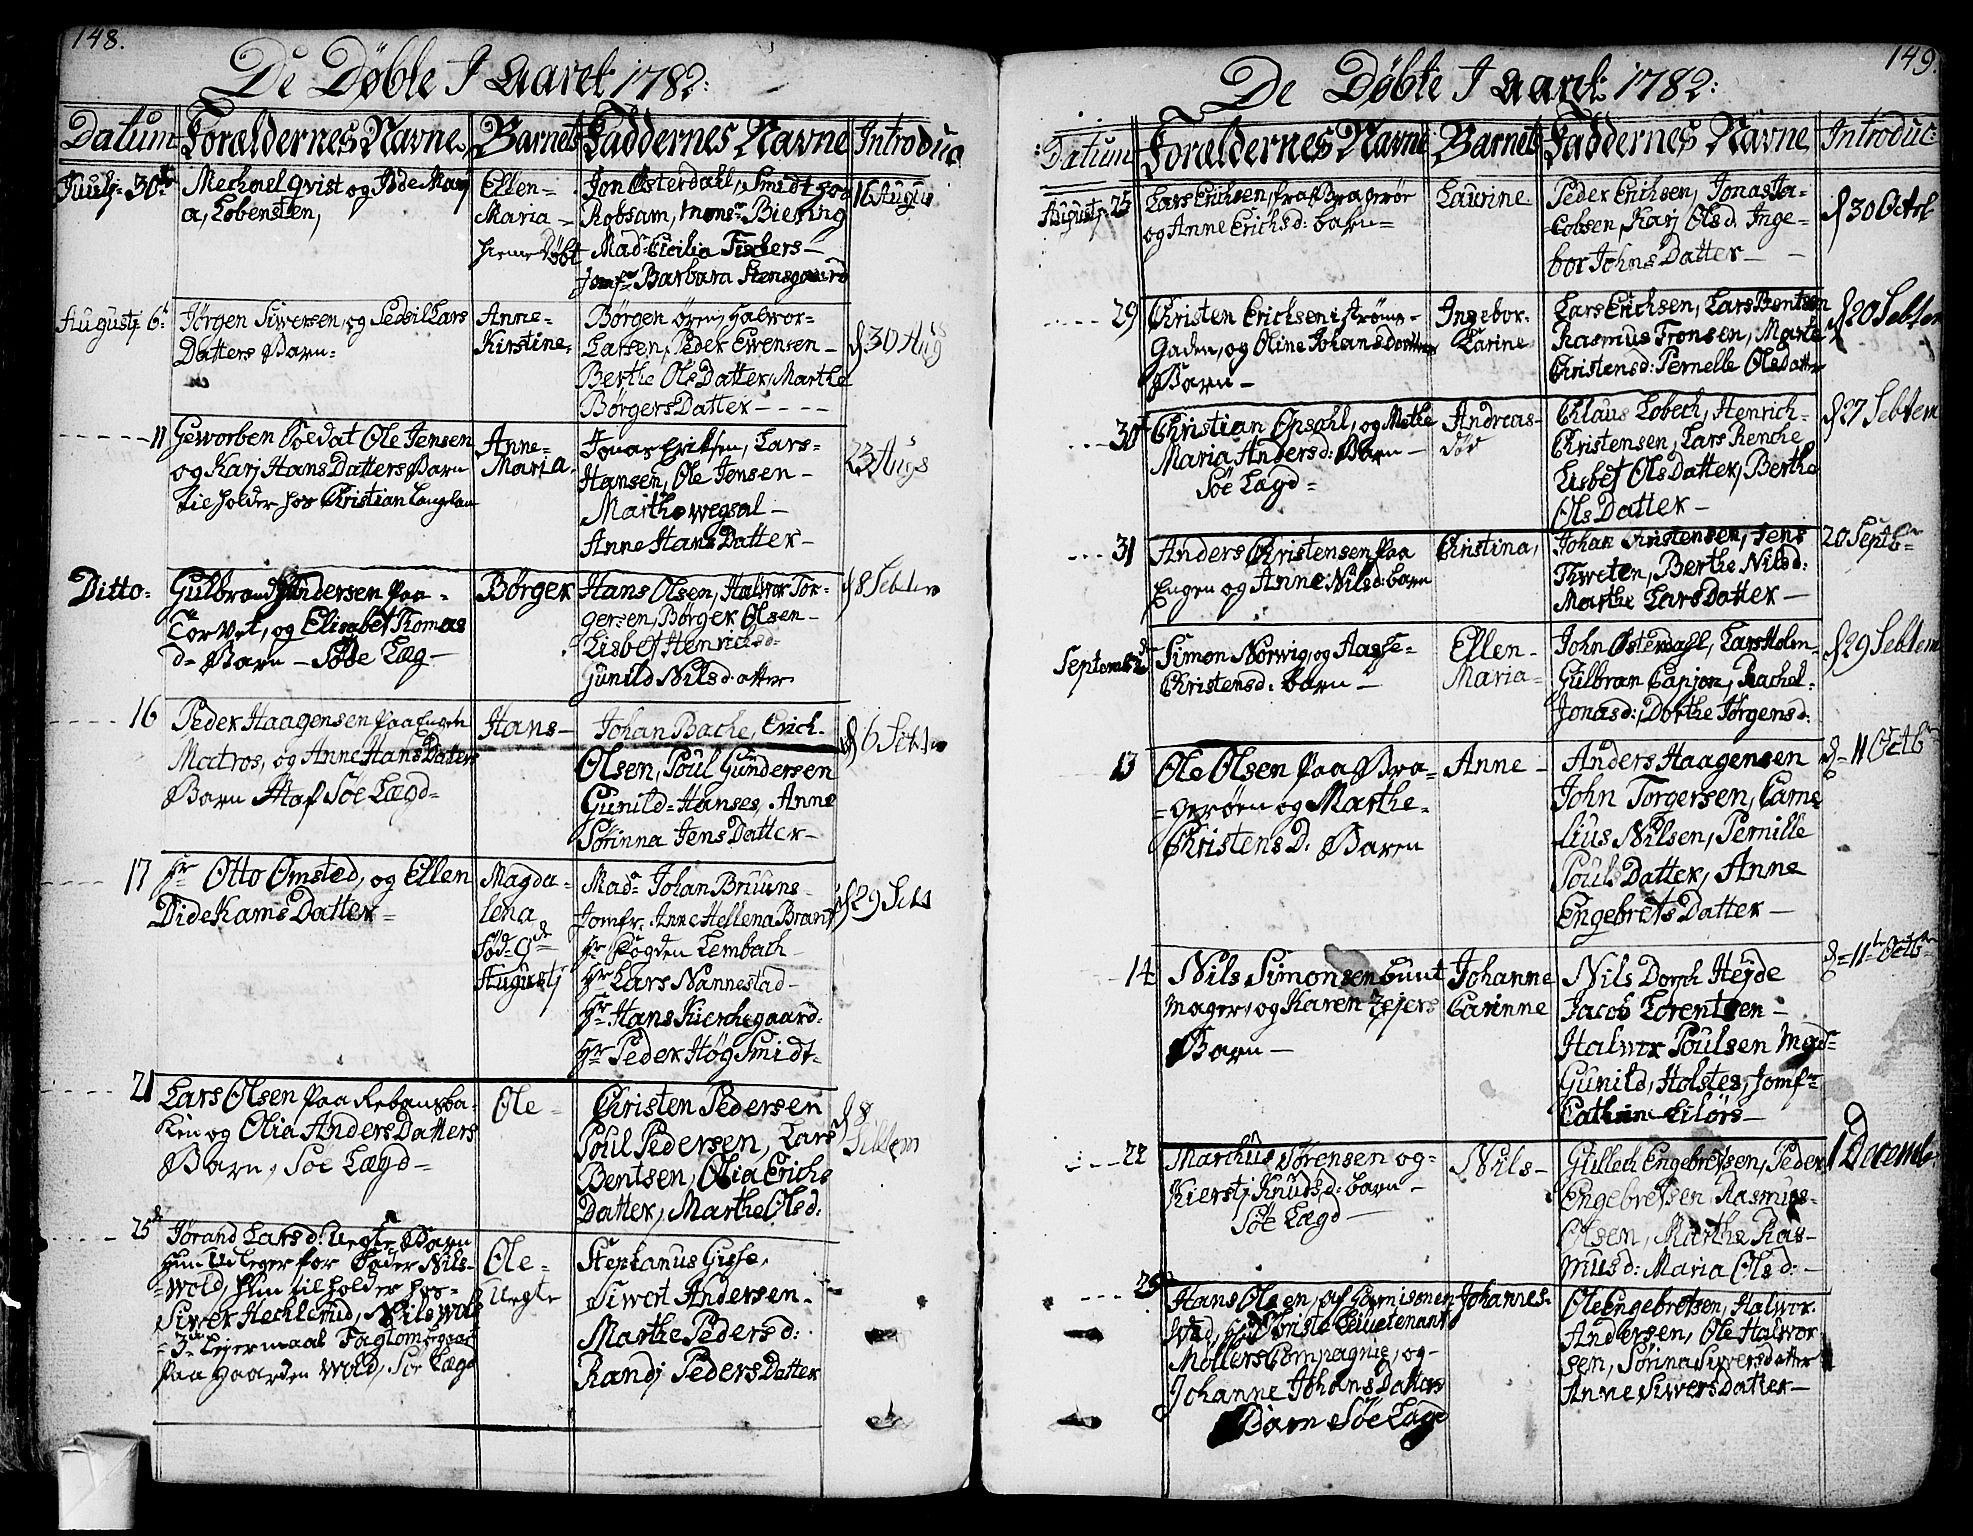 148.
De Døbte I Aaret 1782:
Datum Forældernes Navne, Barnets Faddernes Navne Introduc
Julij 30te
Mechael Qvist og Ide Mari
a, Lobensten,
Ellen=
Maria—
hieme Døbt
Jon Østerdahl, Smidt hos
Robsam, Monsr Biering
Madm Cicilia Fischers—
Jomfr Barbara Stensgaard
16 Augus
Augustj 6t
Jørgen Siwersen, og Sedsil Lars
Datters Barn=
Anne=
Kirstine=
Børgen Øren, Halwor=
Larsen, Peder Ewensen—
Berthe Ols Datter, Marthe
Børgers Datter— - - -
d. 30 Aug
11
Geworben Soldat Ole Jensen
og Karj Hans Datters Barn
til holder hos Christian Langlan
Anne=
Maria.
Jonas Eriksen, Lars=
Hansen, Ole Jensen—
Marthe wegsal—
Anne Hans Datter—
23 Augs
Ditto.
Gulbrand Andersen Paa=
Torvet, og Elisabet Thomas
d= Barn— Søe Læg—
Børger
Hans Olsen, Halwor Tor=
gersen, Børger Olsen—
Lisbet Henrichsd=
Gunild Nilsd:atter
d 8 Sebtem
16
Peder Haagensen Paa Engen
Matros, og Anne Hans Datters
Barn Af Søe Lægd=
Hans—
Johan Bache, Erich
Olsen, Poul Gundersen
Gunild= Hanses, Anne
Sørinna Jens Datter—
d 6 Sebtem
17
Hr Otto Omsted, og Ellen
Dide Kams Datter=
Magda=
lena
Fød= 9de
Augustj
Madm Johan Bruuns—
Jomfr. Anne Hellena Brandt
Hr Fogden Lembach—
Hr Lars Nannestad—
Hr Hans Kierchegaard.
Hr Peder Høg Smidt=
d 29 Sebt
21
Lars Olsen Paa Rebansba=
ken og Olia Anders Datters
Barn, Søe Lægd=
Ole=
Christen Pedersen
Poul Pedersen, Lars
Bentsen, Olia Erichs
Datter, Marthe Olsd:
d 8
Sebtem
25
Jørand Larsd: Uegte Barn
Hun Udleger for Fader Nils=
=Wold, hun til holder hos=
Siwer Hechlemid, Nils Wold
=3 Leiermaal
Paa Gaarden Wold, Søe Lægd
Ole=
Uegte
Stephanus Gisse,
Siwert Andersen.
Marthe Pedersd:
Randj Peders Datter
149.
De Døbte I Aaret 1782:
Datum Forældernes Navne Barnets Faddernes Navne Introduc:
Augustj 25
Lars Erichsen, fra Bragerøe
og Anne Erichsd: barn=
Laurine
Peder Erichsen, Jonas Ja=
cobsen, Karj Olsd: Inge=
bor Johns Datter— —
d 30 Octob
29
Christen Erichsen i Strøms=
Gaden, og Oline Johans Datters
Barn—
Ingebor=
Carine
Lars Erichsen, Lars Bentsen
Rasmus Tronsen, Marte
Christensd: Pernelle Olsdatter
d 20 Sebtem
30t
Christian Opsahl, og Mette
Maria Andersd: Barn—
Søe Lægd=
Andreas=
død
Claus Lobech, Henrich=
Christensen, Lars Renche
Lisbet Ols Datter, Berthe
Ols Datter—
d 27 Sebtem
31
Anders Christensen Paa
Engen og Anne: Nilsd: barn
Christina,
Johan Christensen, Jens
Tweten, Berthe Nilsd:
Marthe Lars Datter—
20 Septbr
September
Simon Norwig, og Aasse=
Christensd: barn—
Ellen—
Maria=
John Østerdahl, Lars Holm=
Gulbran Capjon, Rachel=
Jonasd:, Dorthe Jørgensd:
d 29 Sebtem
13
Ole Olsen Paa Bra=
=gerøen og Marthe=
Christens D: Barn
Anne—
Anders Haagensen
John Torgersen, Carne
lius Nilsen, Pernille
Pouls Datter, Anne
Engebrets Datter—
d= 11 Octbr
14
Nils Simonsen bunt
mager, og Karen Zejers
Barn—
Johanne
Carinne
Nils Dorph Hejde
Jacob Lorentsen—
Halwor Poulsen Mad=
Gunild, Holstes, Jomfr
Cathrine Eilørs—
d= 11te Octbr
22
Marchus Sørensen og=
Kierstj Knudsd: barn—
Søe Lægd—
Nils—
Gullech Engebretsen, Peder
Engebretsen, Rasmus=
Olsen, Marthe Ras=
musd: Maria Olsd:—
1 Decemb
29
Hans Olsen, af Garnisonen
Premier Lieutenant
Møllers Compagnie, og=
Johanne Johans Datters
Barn Søe Lægd
Johannes.
Ole Engebretsen, Halwor.
Andersen, Ole Halwor
sen, Sørina Siwersdatter
Anne Siwers Datter—